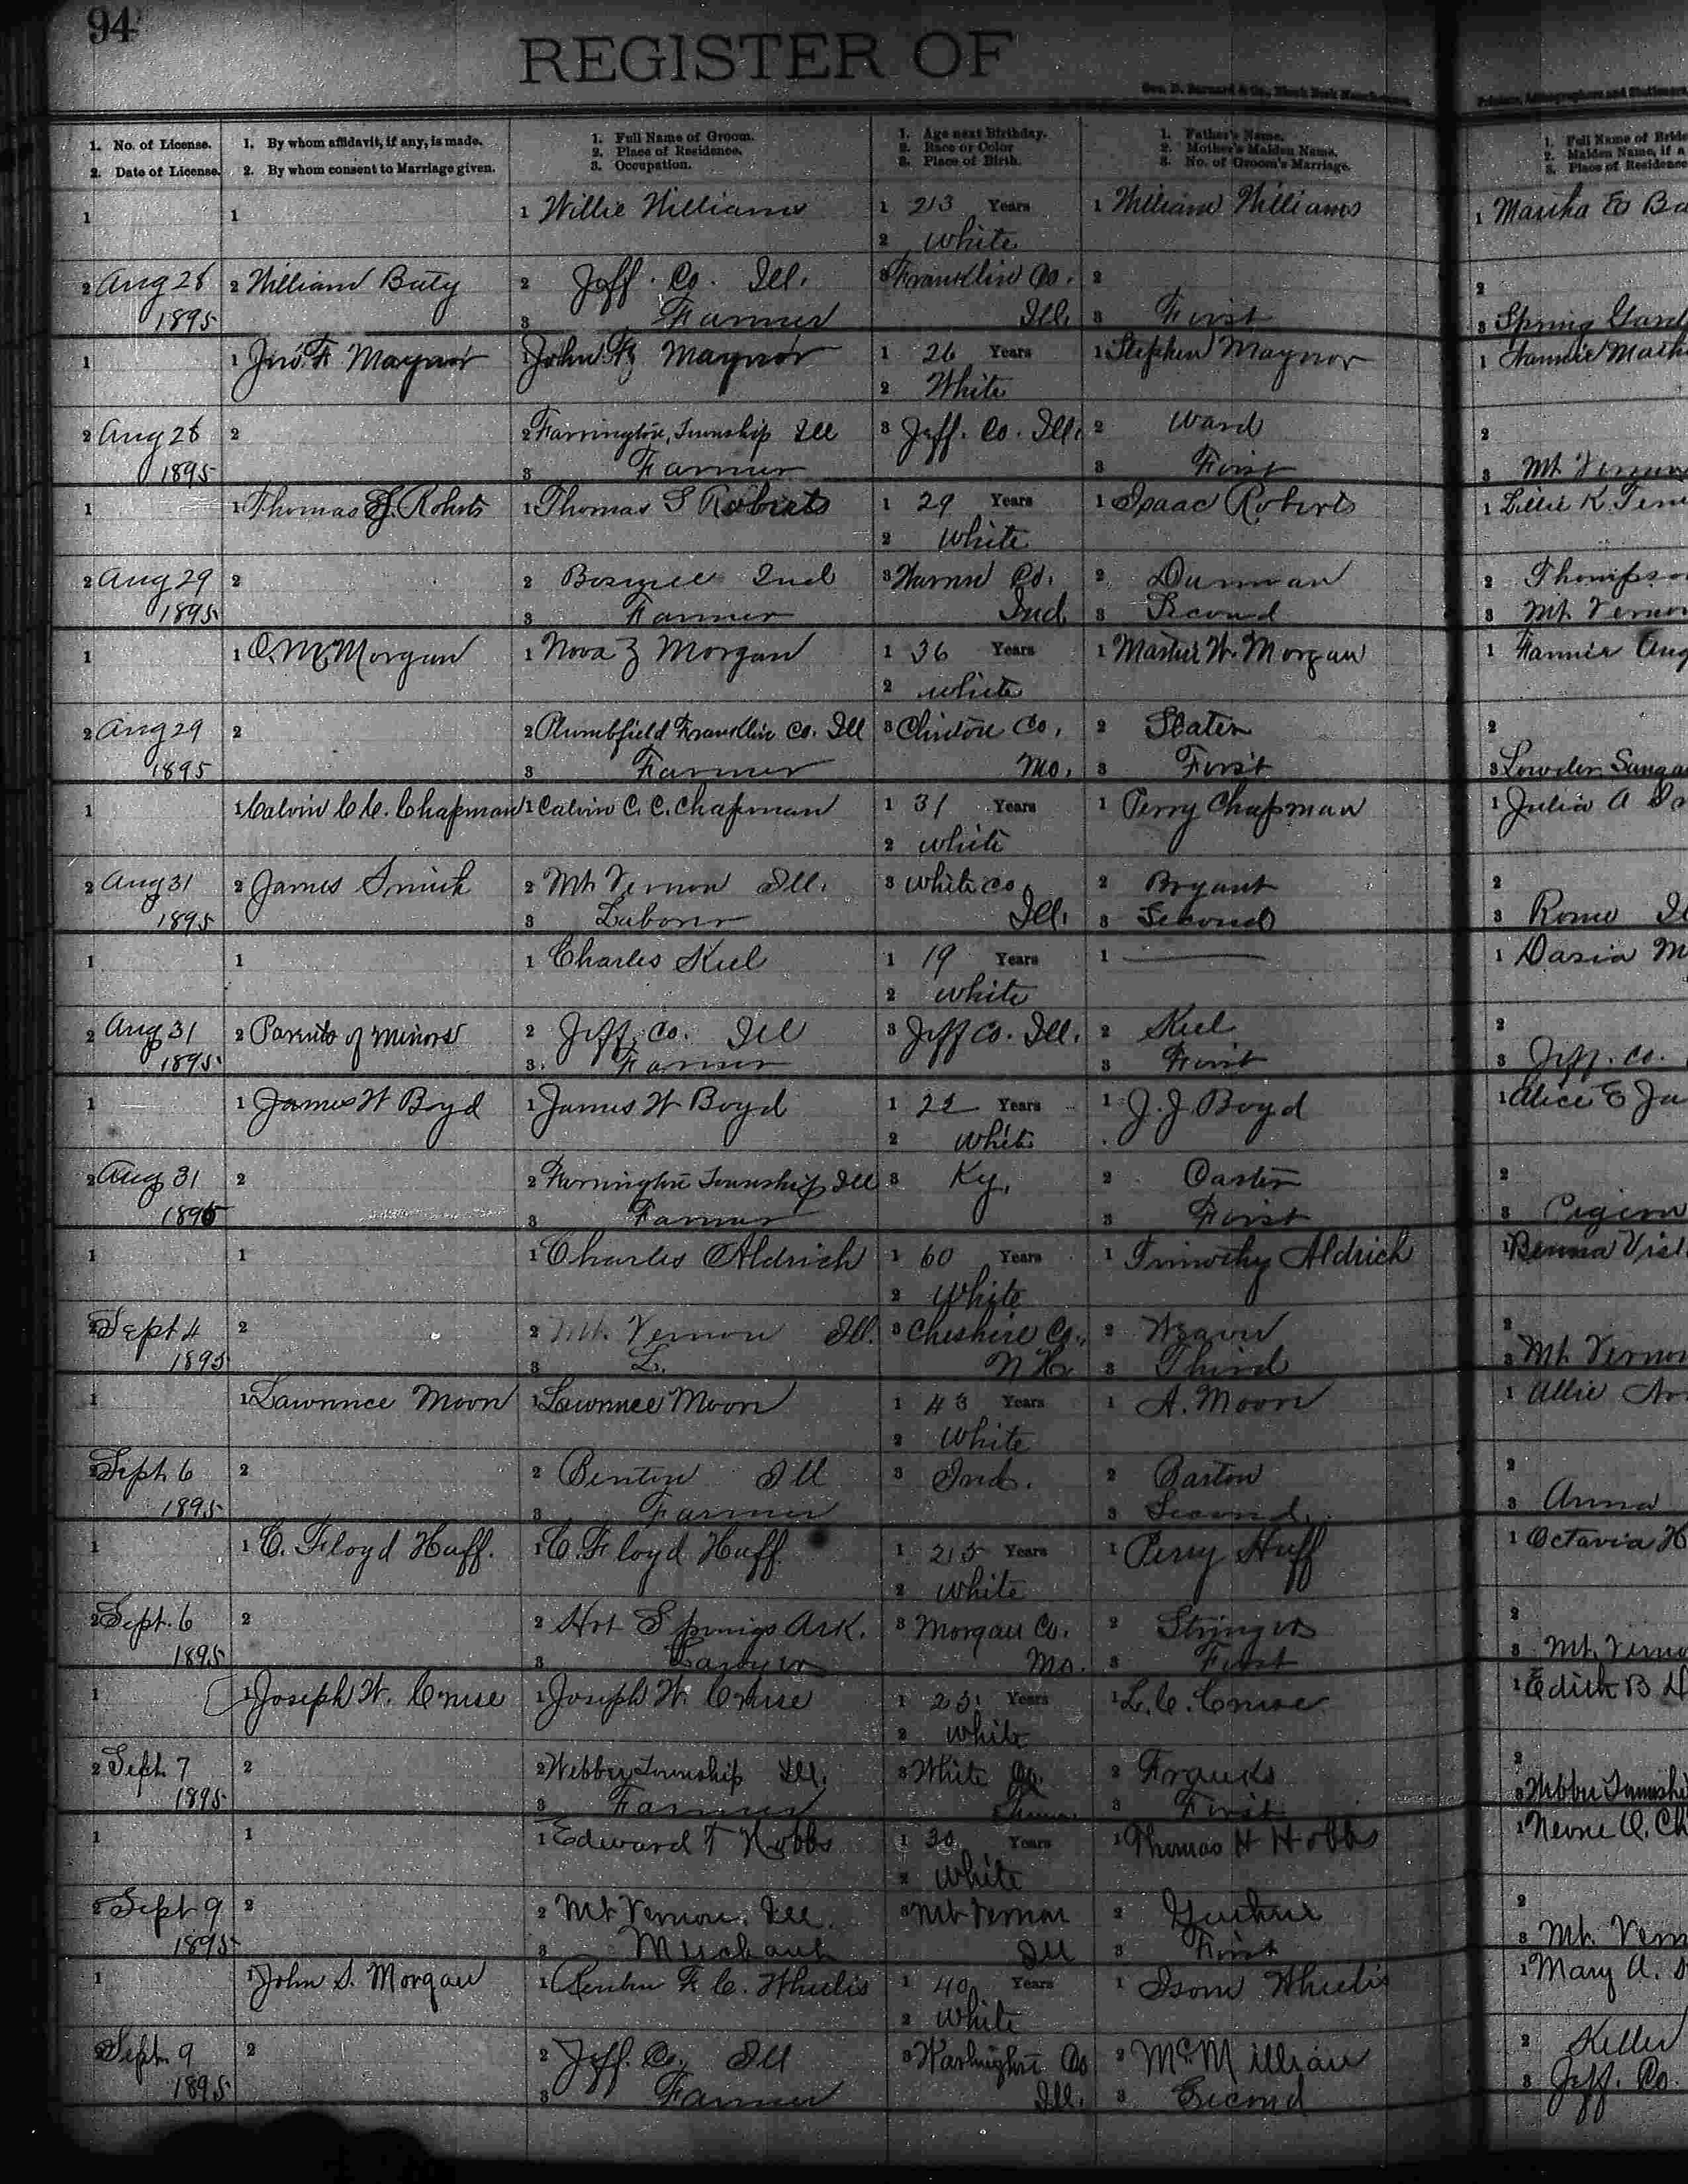 94
REGISTER OF
Geo. D. Barnard & Co., Blank Book Manufacturers,
Printers, Lithographers and Stationers,
1. No. of License.
2. Date of License.
1. By whom affidavit, if any, is made.
2. By whom consent to Marriage given.
1. Full Name of Groom.
2. Place of Residence.
3. Occupation.
1. Age next Birthday.
2. Race or Color
3. Place of Birth.
1. Father's Name.
2. Mother's Maiden Name.
3. No. of Groom's Marriage.
1. Full Name of Bride
2. Maiden Name, if a
3. Place of Residence
1 1 1 Willie Williams 1 23 Years 1 William Williams 1 Martha E Ba
2 White
2 Aug 28 2 William Baty 2 Jeff. Co. Ill. 3 Franklin Co. 2 2
1895 3 Farmer Ill. 3 First 3 Spring Gard
1 1 Jno. F Maynor 1 John F Maynor 1 26 Years 1 Stephen Maynor 1 Fannie
2 White
2 Aug 28 2 2 Farrington Township Ill 3 Jeff. Co. Ill. 2 Ward 2
1895 3 Farmer 3 First 3 Mt Vernon
1 1 Thomas S. Roberts 1 Thomas S Roberts 1 29 Years 1 Isaac Roberts 1 Lillie K
2 White
2 Aug 29 2 2 Ind 3 Co. 2 2 Thompso
1895 3 Farmer Ind 3 Second 3 Mt. Vernon
1 1 O. M. Morgan 1 Nova Z Morgan 1 36 Years 1 W. Morgan 1 Fannie Aug
2 white
2 Aug 29 2 2 Plumbfield Franklin Co. Ill 3 Clinton Co. 2 Slater 2
1895 3 Farmer Mo. 3 First 3
1 1 Calvin C. C. Chapman 1 Calvin C. C. Chapman 1 31 Years 1 Perry Chapman 1 Julia A
2 white
2 Aug 31 2 James Smith 2 Mt Vernon Ill. 3 White Co 2 Bryant 2
1895 3 Laborer Ill. 3 Second 3 Rome Il
1 1 1 Charles Kiel 1 19 Years 1 1 Dasia M
2 White
2 Aug 31 2 Parents of Minors 2 Jeff. Co. Ill 3 Jeff Co. Ill. 2 Kiel 2
1895 3. Farmer 3 First 3 Jeff. Co.
1 1 James W Boyd 1 James W Boyd 1 22 Years 1 J. J. Boyd 1 Alice E Ja
2 White
2 Aug 31 2 2 Farrington Township Ill 3 Ky. 2 Carter 2
1895 3 Farmer 3 First 3
1 1 1 Charles Aldrich 1 60 Years 1 Timothy Aldrich 1
2 White
2 Sept 4 2 2 Mt. Vernon Ill. 3 Cheshire Co., 2 Weaver 2
1895 3 L. N H. 3 Third 3 Mt. Vernon
1 1 Lawrence Moon 1 Lawrence Moon 1 43 Years 1 A. Moon 1 Allie
2 White
2 Sept. 6 2 2 Benton Ill 3 Ind. 2 Barton 2
1895 3 Farmer 3 Second. 3 Anna
1 1 C. Floyd Huff. 1 C. Floyd Huff 1 25 Years 1 Perry Huff 1 Octavia H
2 White
2 Sept. 6 2 2 Hot Springs Ark. 3 Morgan Co. 2 Stringer 2
1895 3 Lawyer Mo. 3 First 3 Mt. Verno
1 1 Joseph W. Cruse 1 Joseph W. Cruse 1 25 Years 1 L. C. Cruse 1 Edith B
2 white
2 Sept. 7 2 2 Webber Township Ill. 3 White Co. 2 Franks 2
1895 3 Farmer 3 First 3 Webber Townshi
1 1 1 Edward T Hobbs 1 30 Years 1 Thomas H Hobbs 1
2 White
2 Sept 9 2 2 Mt Vernon. Ill. 3 Mt Vernon 2 Guthrie 2
1895 3 Merchant Ill 3 First 3 Mt. Vern
1 1 John S. Morgan 1 Reuben F. C. Wheelis 1 40 Years 1 Isom Wheelis 1 Mary A.
2 White
2 Sept. 9 2 2 Jeff. Co. Ill 3 Washington Co 2 McMillian 2 Keller
1895 3 Farmer Ill. 3 Second 3 Jeff. Co.